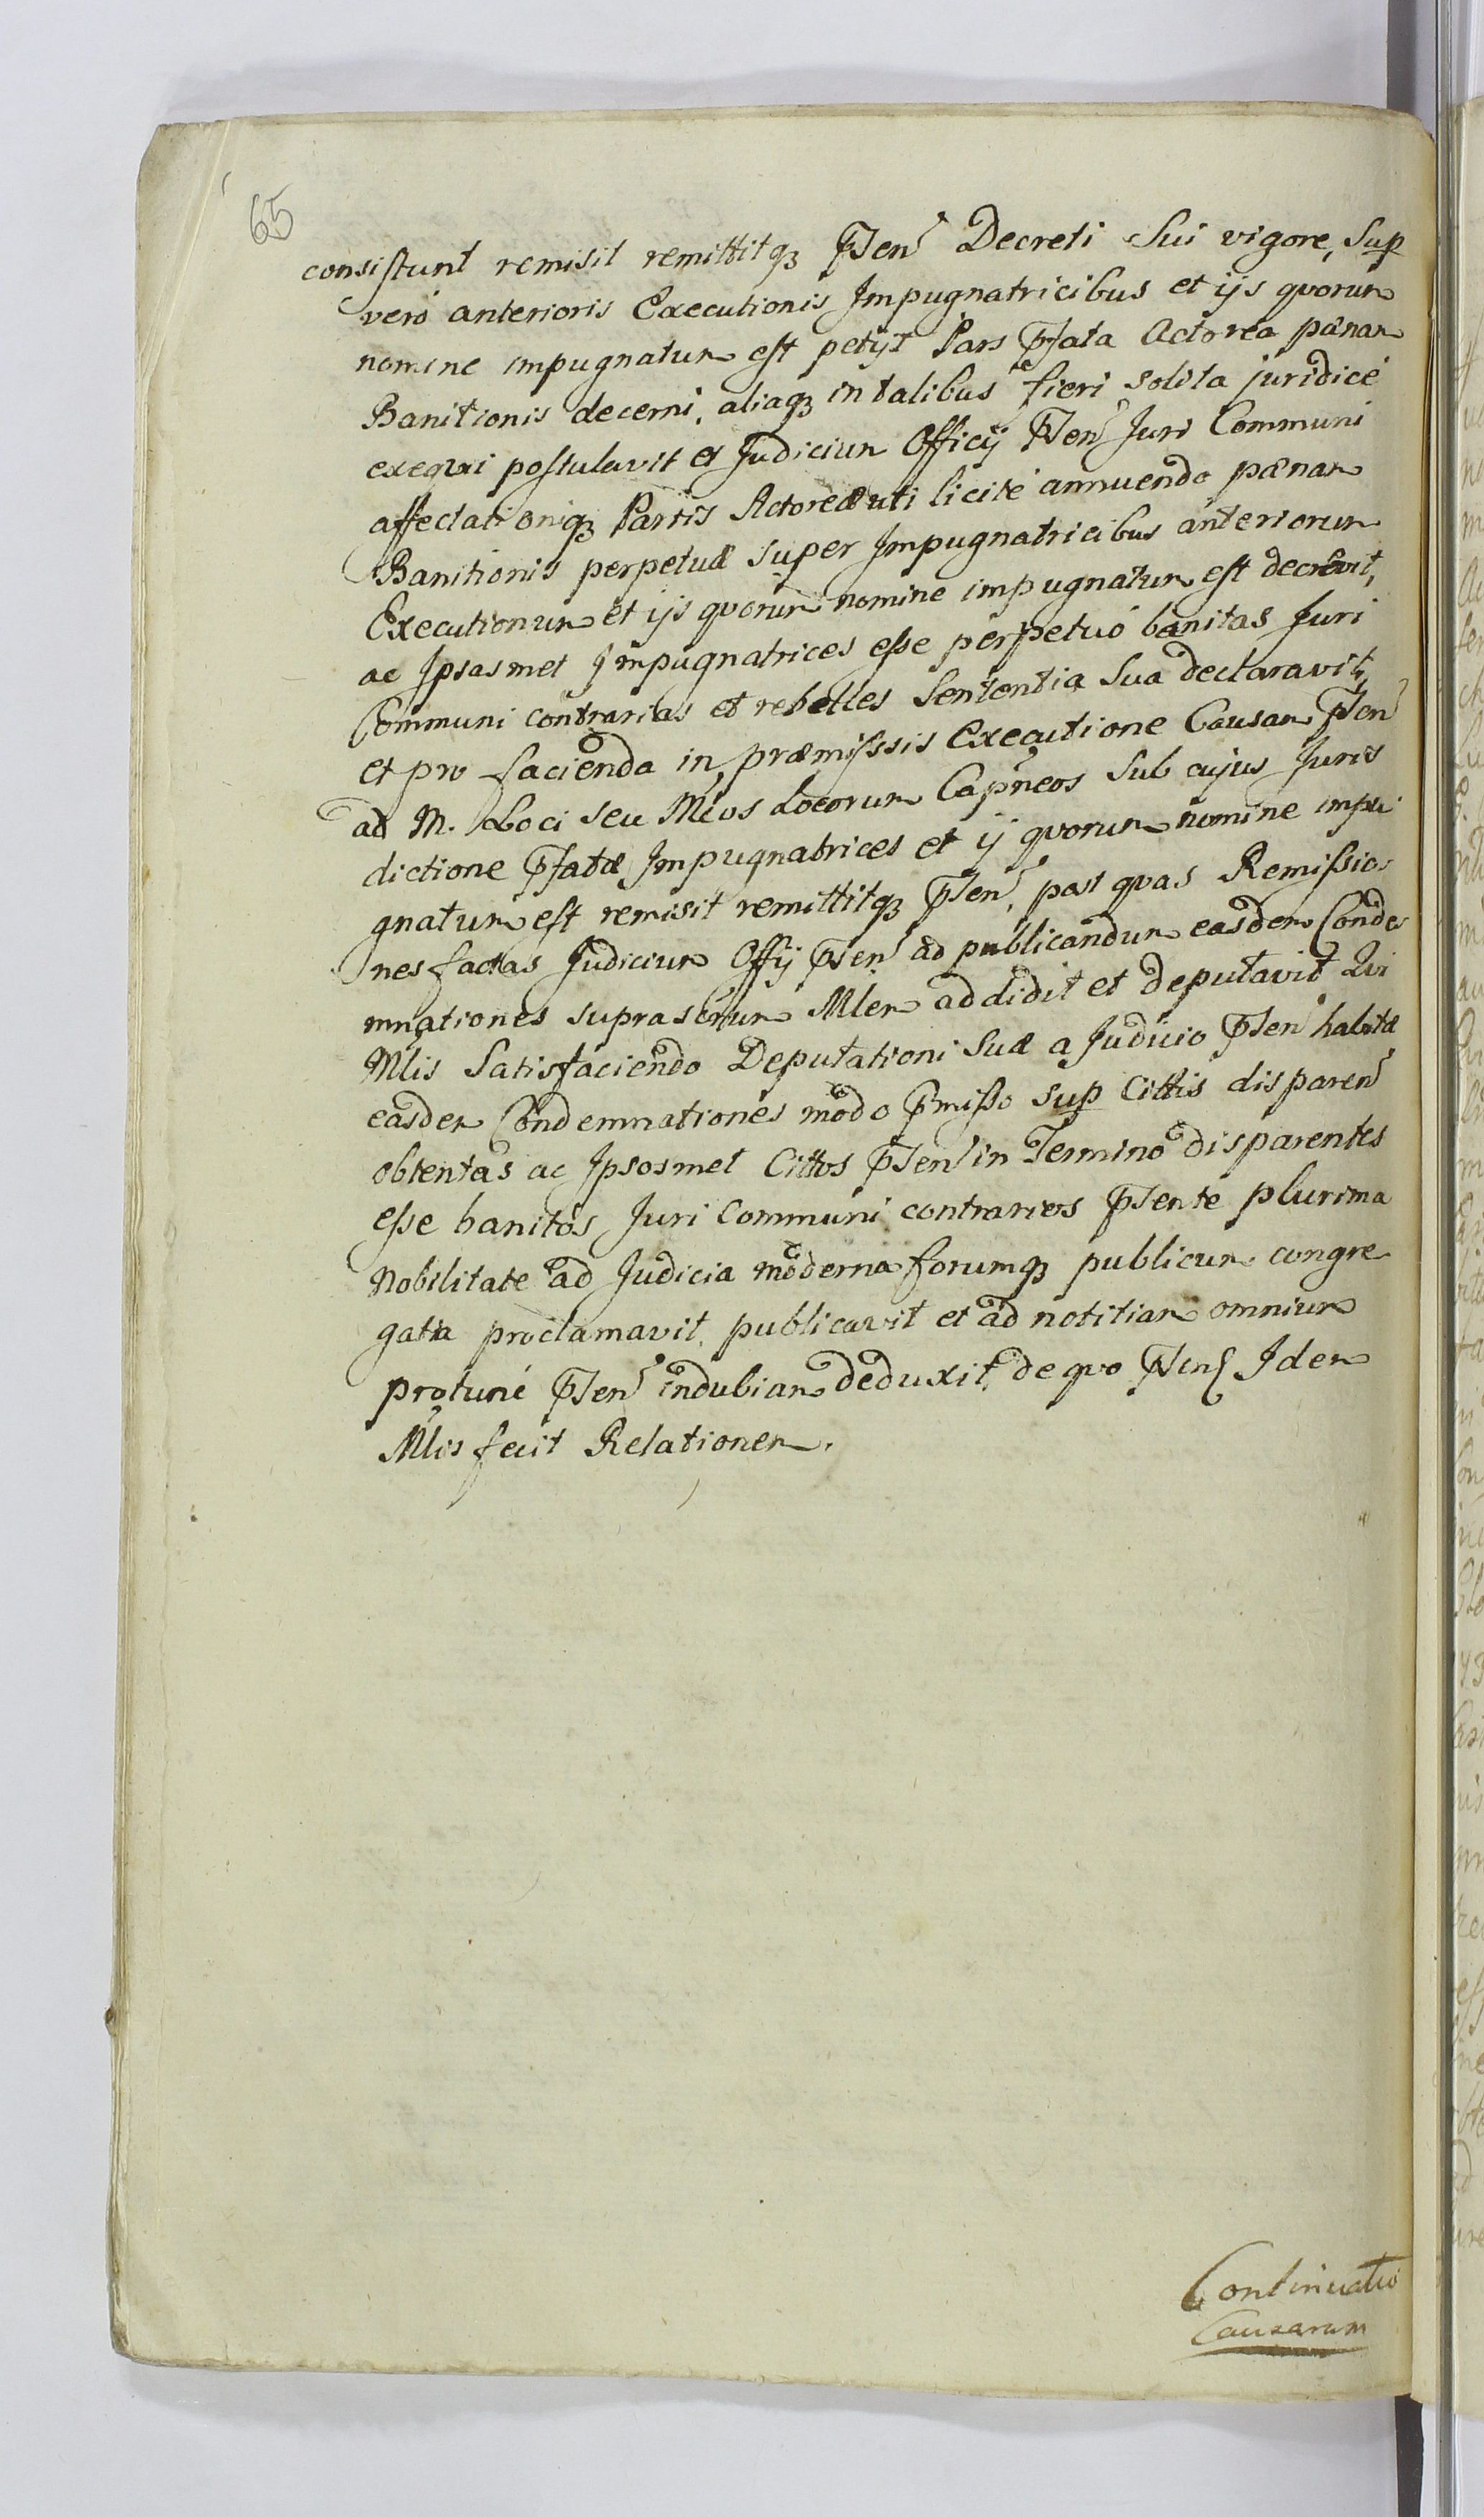 65
consistunt remisit remittitq₃ Pñsen Decreti Sui vigore, Sup
vero anterioris Executionis Impugnatricibus et ijs qvorum
nomine impugnatum est petijt Pars Pfata Actorea pænam
Banitionis decerni, aliaq₃ in talibus fieri solita juridicé
exeqvi postulavit et Judicium Officij Pñsen Juri Communi
affectationiq₃ Partis Actoreæ uti licité annuendo pænam
Banitionis perpetuæ super Impugnatricibus anteriorum
Executionum et ijs qvorum nomine impugnatum est decrevit,
ac Ipsasmet Impugnatrices esse perpetuó banitas Juri
Communi contrarias et rebelles Sententia Sua declaravit,
et pro facienda in præmissis Executione Causam Pñsen
ad M. Loci seu Mcos Locorum Capñeos Sub cujus Juris
dictione Pfatæ Impugnatrices et ij qvorum nomine impu
gnatum est remisit remittitq₃ Pñsen, post qvas Remissio
nes factas Judicium Offij Pñsen ad publicandum easdem Conde
mnationes suprascrium Mlem addidit et deputavit Qvi
Mlis Satisfaciendo Deputationi Suæ a Judicio Pñsen habitæ
easdem Condemnationes modo Pmisso sup Cittis disparen
obtentas ac Ipsosmet Cittos Pñsen in Termino disparentes
esse banitos Juri Communi contrarios Pñsente plurima
Nobilitate ad Judicia moderna forumq₃ publicum congre
gata proclamavit, publicavit et ad notitiam omnium
protunc Pñsen indubiam deduxit, de qvo Pñsens Idem
Mlis fecit Relationem.
Continuatio
Causarum